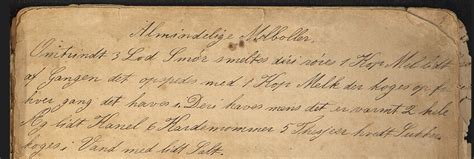 Almindelige Melboller.
Omtrindt 3 Lod Smør smeltes deri røres 1 Kop Mel lidt
af Gangen det oppspeds med 1 Kop Melk der koges op for
hver gang det haves i. Deri haves mens det er varmt 2 hele
Æg lidt Kanel 6 Kardemommer 5 Theskjeer hvidt Sukker
koges i Vand med lidt Salt.